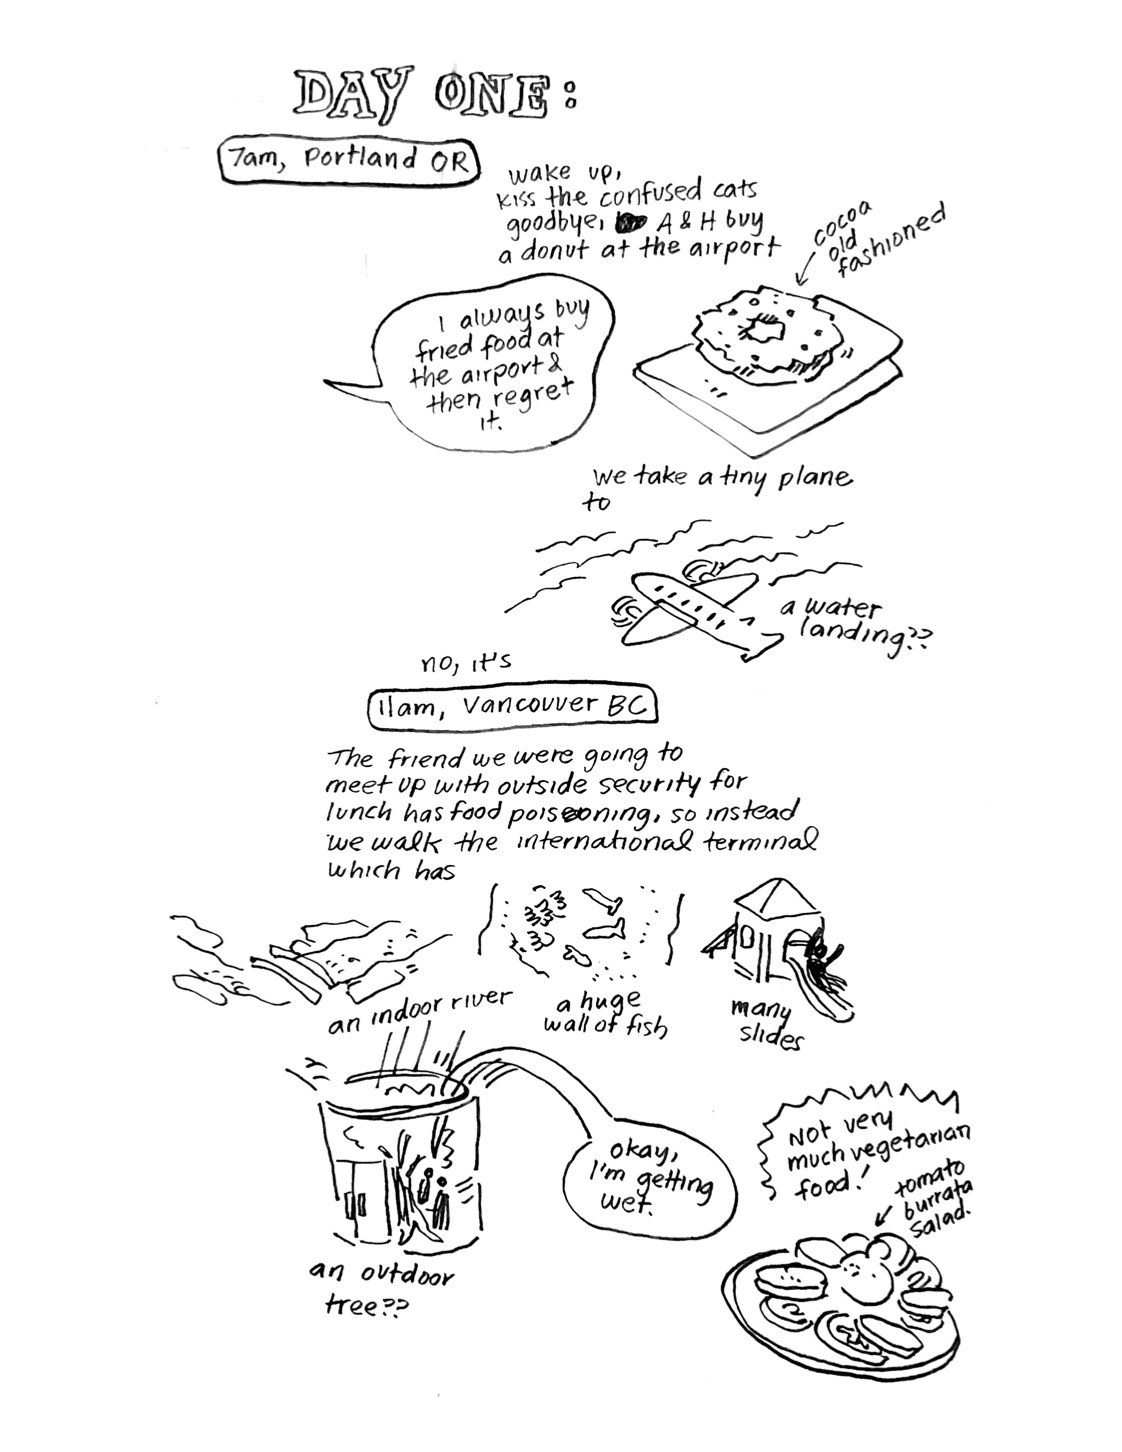 DAY ONE:
7am, Portland OR
wake up,
kiss the confused cats
goodbye, A & H buy
a donut at the airport
cocoa
old
fashioned
I always buy
fried food at
the airport &
then regret
it.
we take a tiny plane
to
a water
landing??
no, it's
11am, Vancouver BC
The friend we were going to
meet up with outside security for
lunch has food poisoning, so instead
we walk the international terminal
which has
an indoor river
a huge
wall of fish
many
slides
okay,
I'm getting
wet.
an outdoor
tree??
Not very
much vegetarian
food!
tomato
burrata
salad.